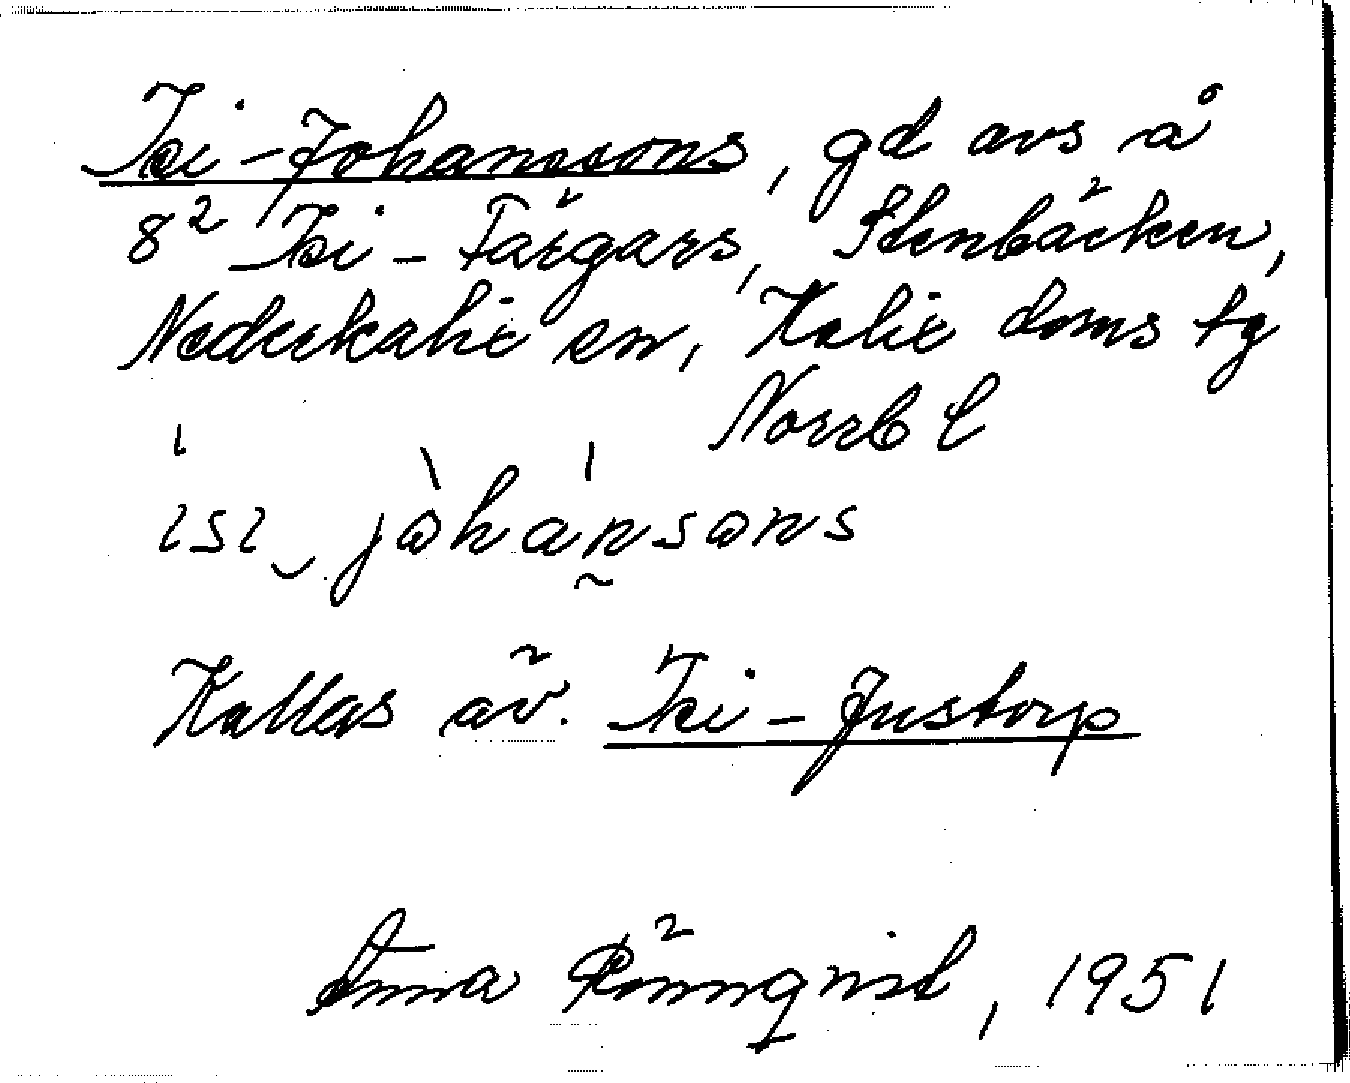 Isi-Johanssons, gd avs å
8² Isi-Färgars, Stenbäcken,
Nederkalix sn, Kalix doms tg
Norrb l
isi johansons
Kallas äv. Isi-Justorp
Anna Rönnqvist, 1951